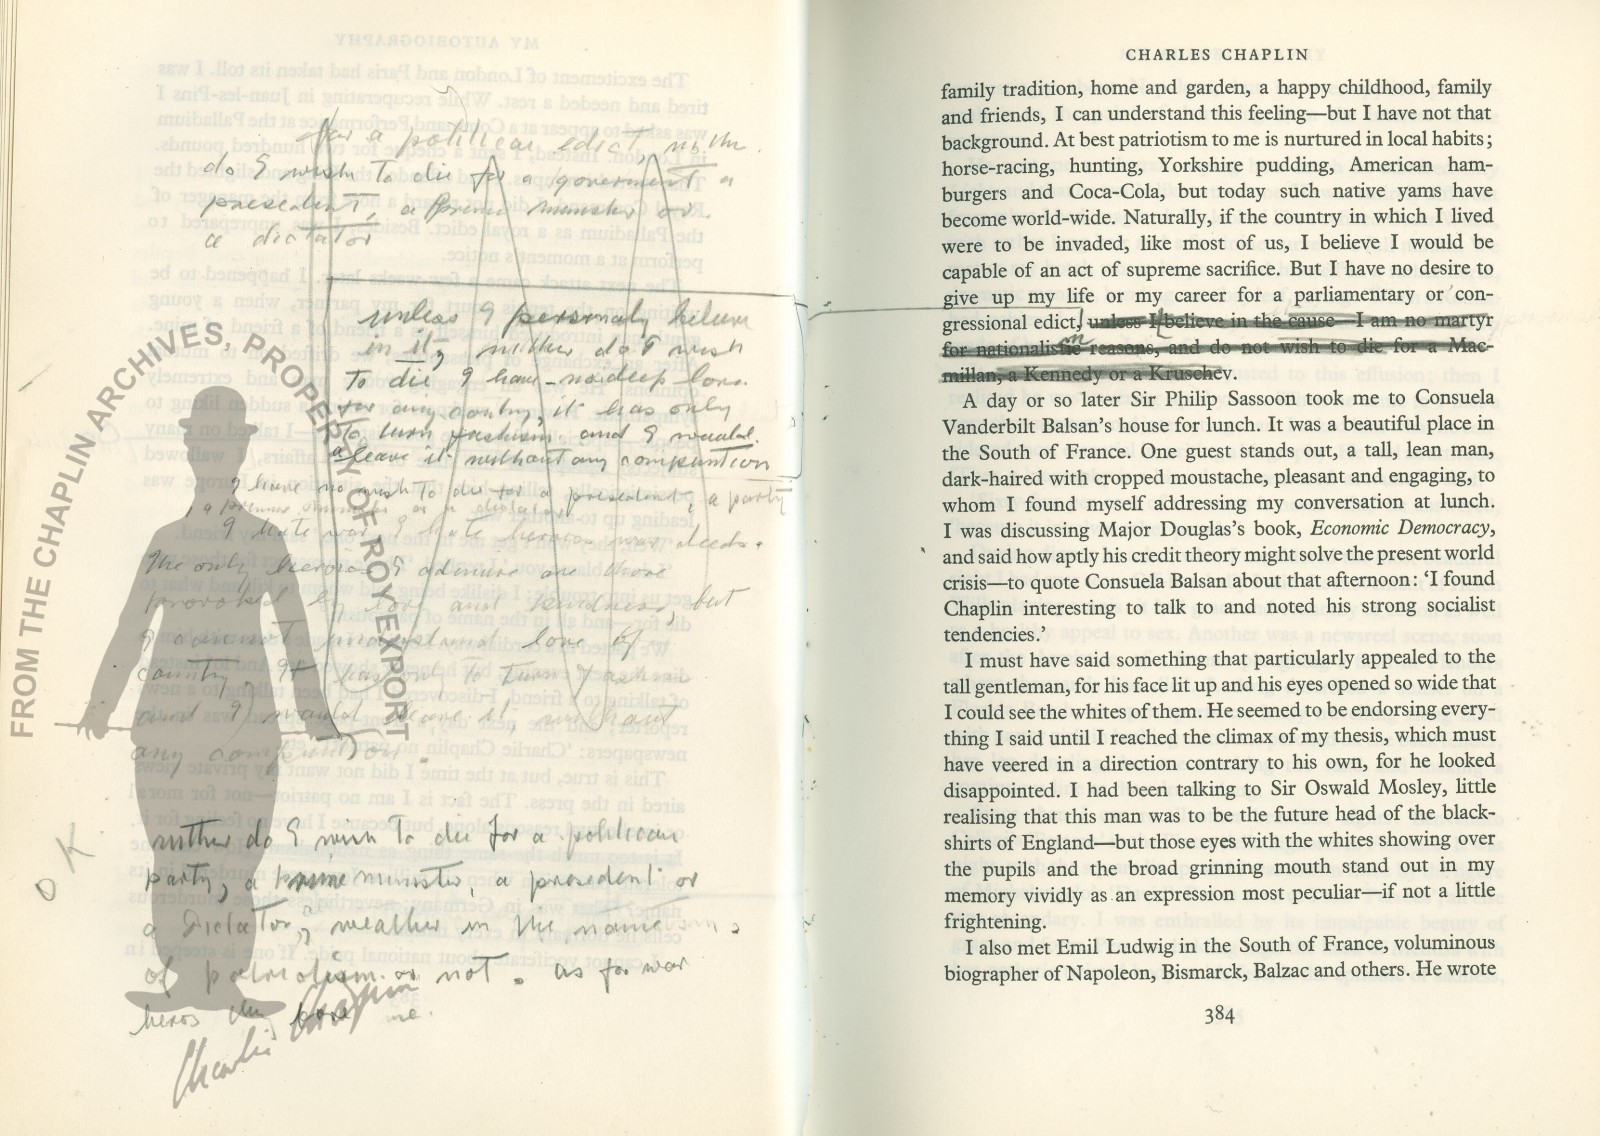 for a political edict, neither
do I wish to die for a goverment a
president, a prime minister or
a dictator
unless I personaly believe
in it, neither do I wish
to die, I have no deep love
for any contry, it has only
to turn fashism and I would
leave it without any compunction
I have no wish to die for a president, a party
a prime minister or a dictator
I hate war I hate heroics war deeds.
The only heroics I admire are those
provoked by love and kindness, but
I cannot understand love of
country. It has only to turn fashism
and I would leave it without
any compunction.
O K
neither do I wish to die for a politican
party, a prime minister, a presedent or
a Dictator, weather in the name
of patriotism or not. as for war
heros they bore me.
FROM THE CHAPLIN ARCHIVES, PROPERTY OF ROY EXPORT
Charlie Chaplin
CHARLES CHAPLIN
family tradition, home and garden, a happy childhood, family
and friends, I can understand this feeling—but I have not that
background. At best patriotism to me is nurtured in local habits;
horse-racing, hunting, Yorkshire pudding, American ham-
burgers and Coca-Cola, but today such native yams have
become world-wide. Naturally, if the country in which I lived
were to be invaded, like most of us, I believe I would be
capable of an act of supreme sacrifice. But I have no desire to
give up my life or my career for a parliamentary or con-
gressional edict, unless I believe in the cause—I am no martyr
for nationalistic reasons, and do not wish to die for a Mac-
millan, a Kennedy or a Kruschev.
A day or so later Sir Philip Sassoon took me to Consuela
Vanderbilt Balsan's house for lunch. It was a beautiful place in
the South of France. One guest stands out, a tall, lean man,
dark-haired with cropped moustache, pleasant and engaging, to
whom I found myself addressing my conversation at lunch.
I was discussing Major Douglas's book, Economic Democracy,
and said how aptly his credit theory might solve the present world
crisis—to quote Consuela Balsan about that afternoon: 'I found
Chaplin interesting to talk to and noted his strong socialist
tendencies.'
I must have said something that particularly appealed to the
tall gentleman, for his face lit up and his eyes opened so wide that
I could see the whites of them. He seemed to be endorsing every-
thing I said until I reached the climax of my thesis, which must
have veered in a direction contrary to his own, for he looked
disappointed. I had been talking to Sir Oswald Mosley, little
realising that this man was to be the future head of the black-
shirts of England—but those eyes with the whites showing over
the pupils and the broad grinning mouth stand out in my
memory vividly as an expression most peculiar—if not a little
frightening.
I also met Emil Ludwig in the South of France, voluminous
biographer of Napoleon, Bismarck, Balzac and others. He wrote
384